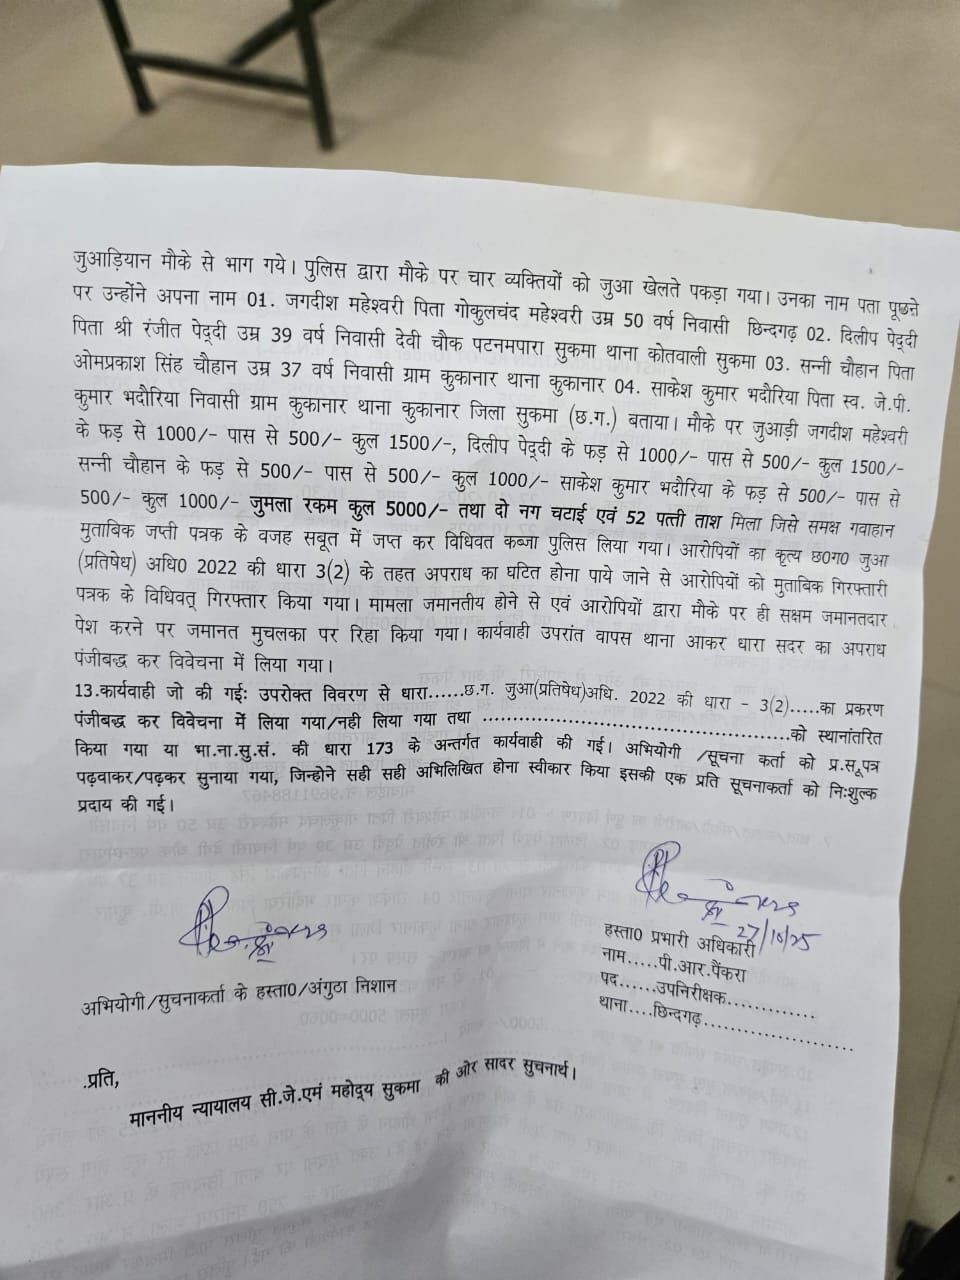 जुआड़ियान मौके से भाग गये। पुलिस द्वारा मौके पर चार व्यक्तियों को जुआ खेलते पकड़ा गया। उनका नाम पता पूछने
पर उन्होंने अपना नाम 01. जगदीश महेश्वरी पिता गोकुलचंद महेश्वरी उम्र 50 वर्ष निवासी छिन्दगढ़ 02. दिलीप पेद्दी
पिता श्री रंजीत पेद्दी उम्र 39 वर्ष निवासी देवी चौक पटनमपारा सुकमा थाना कोतवाली सुकमा 03. सन्नी चौहान पिता
ओमप्रकाश सिंह चौहान उम्र 37 वर्ष निवासी ग्राम कुकानार थाना कुकानार 04. साकेश कुमार भदौरिया पिता स्व. जे.पी.
कुमार भदौरिया निवासी ग्राम कुकानार थाना कुकानार जिला सुकमा (छ.ग.) बताया। मौके पर जुआड़ी जगदीश महेश्वरी
के फड़ से 1000/- पास से 500/- कुल 1500/-, दिलीप पेद्दी के फड़ से 1000/- पास से 500/- कुल 1500/-
सन्नी चौहान के फड़ से 500/- पास से 500/- कुल 1000/- साकेश कुमार भदौरिया के फड़ से 500/- पास से
500/- कुल 1000/- जुमला रकम कुल 5000/- तथा दो नग चटाई एवं 52 पत्ती ताश मिला जिसे समक्ष गवाहान
मुताबिक जप्ती पत्रक के वजह सबूत में जप्त कर विधिवत कब्जा पुलिस लिया गया। आरोपियों का कृत्य छ0ग0 जुआ
(प्रतिषेध) अधि0 2022 की धारा 3(2) के तहत अपराध का घटित होना पाये जाने से आरोपियों को मुताबिक गिरफ्तारी
पत्रक के विधिवत् गिरफ्तार किया गया। मामला जमानतीय होने से एवं आरोपियों द्वारा मौके पर ही सक्षम जमानतदार
पेश करने पर जमानत मुचलका पर रिहा किया गया। कार्यवाही उपरांत वापस थाना आकर धारा सदर का अपराध
पंजीबद्ध कर विवेचना में लिया गया।
13.कार्यवाही जो की गईः उपरोक्त विवरण से धारा......छ.ग. जुआ(प्रतिषेध)अधि. 2022 की धारा - 3(2).....का प्रकरण
पंजीबद्ध कर विवेचना में लिया गया/नही लिया गया तथा ..................................................को स्थानांतरित
किया गया या भा.ना.सु.सं. की धारा 173 के अन्तर्गत कार्यवाही की गई। अभियोगी /सूचना कर्ता को प्र.सू.पत्र
पढ़वाकर/पढ़कर सुनाया गया, जिन्होने सही सही अभिलिखित होना स्वीकार किया इसकी एक प्रति सूचनाकर्ता को निःशुल्क
प्रदाय की गई।
27/10/25
हस्ता0 प्रभारी अधिकारी
नाम.....पी.आर.पैंकरा
पद......उपनिरीक्षक.............
थाना....छिन्दगढ़......................
अभियोगी/सुचनाकर्ता के हस्ता0/अंगुठा निशान
.प्रति,
माननीय न्यायालय सी.जे.एमं महोद्य सुकमा की ओर सादर सुचनार्थ।